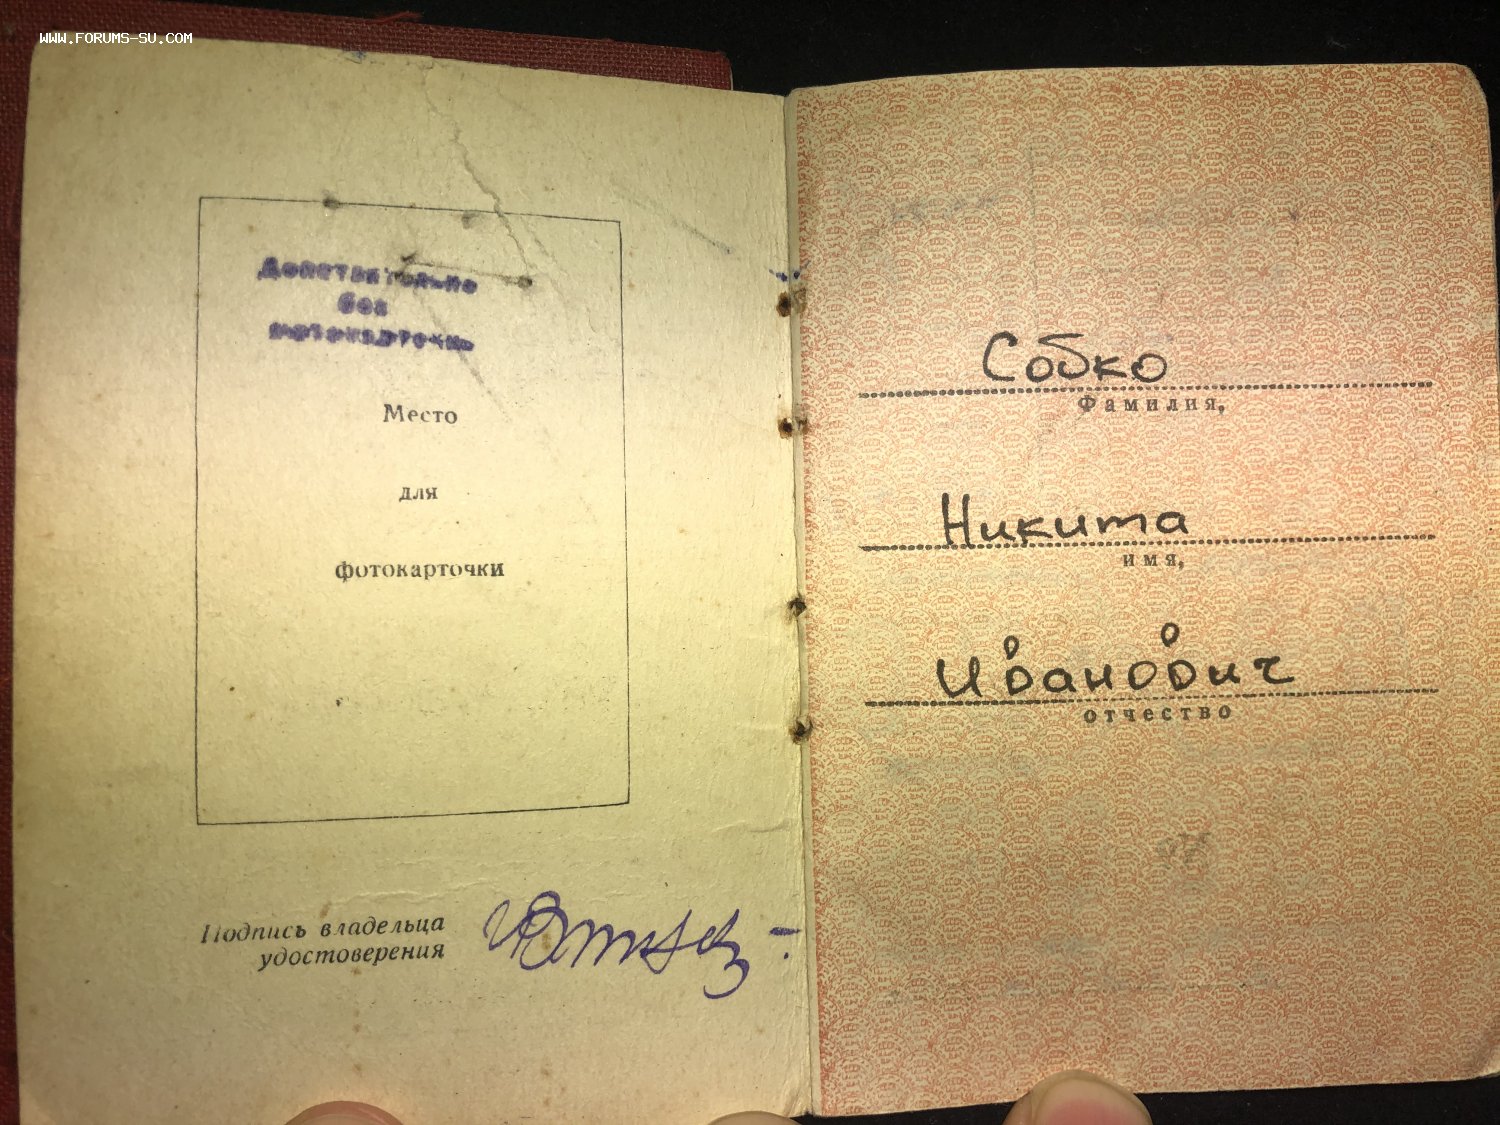 WWW.FORUMS-SU.COM
Действительно
без
фотокарточки
Место
для
фотокарточки
Подпись владельца
удостоверения
Собко
Фамилия,
Никита
имя,
Иванович
отчество